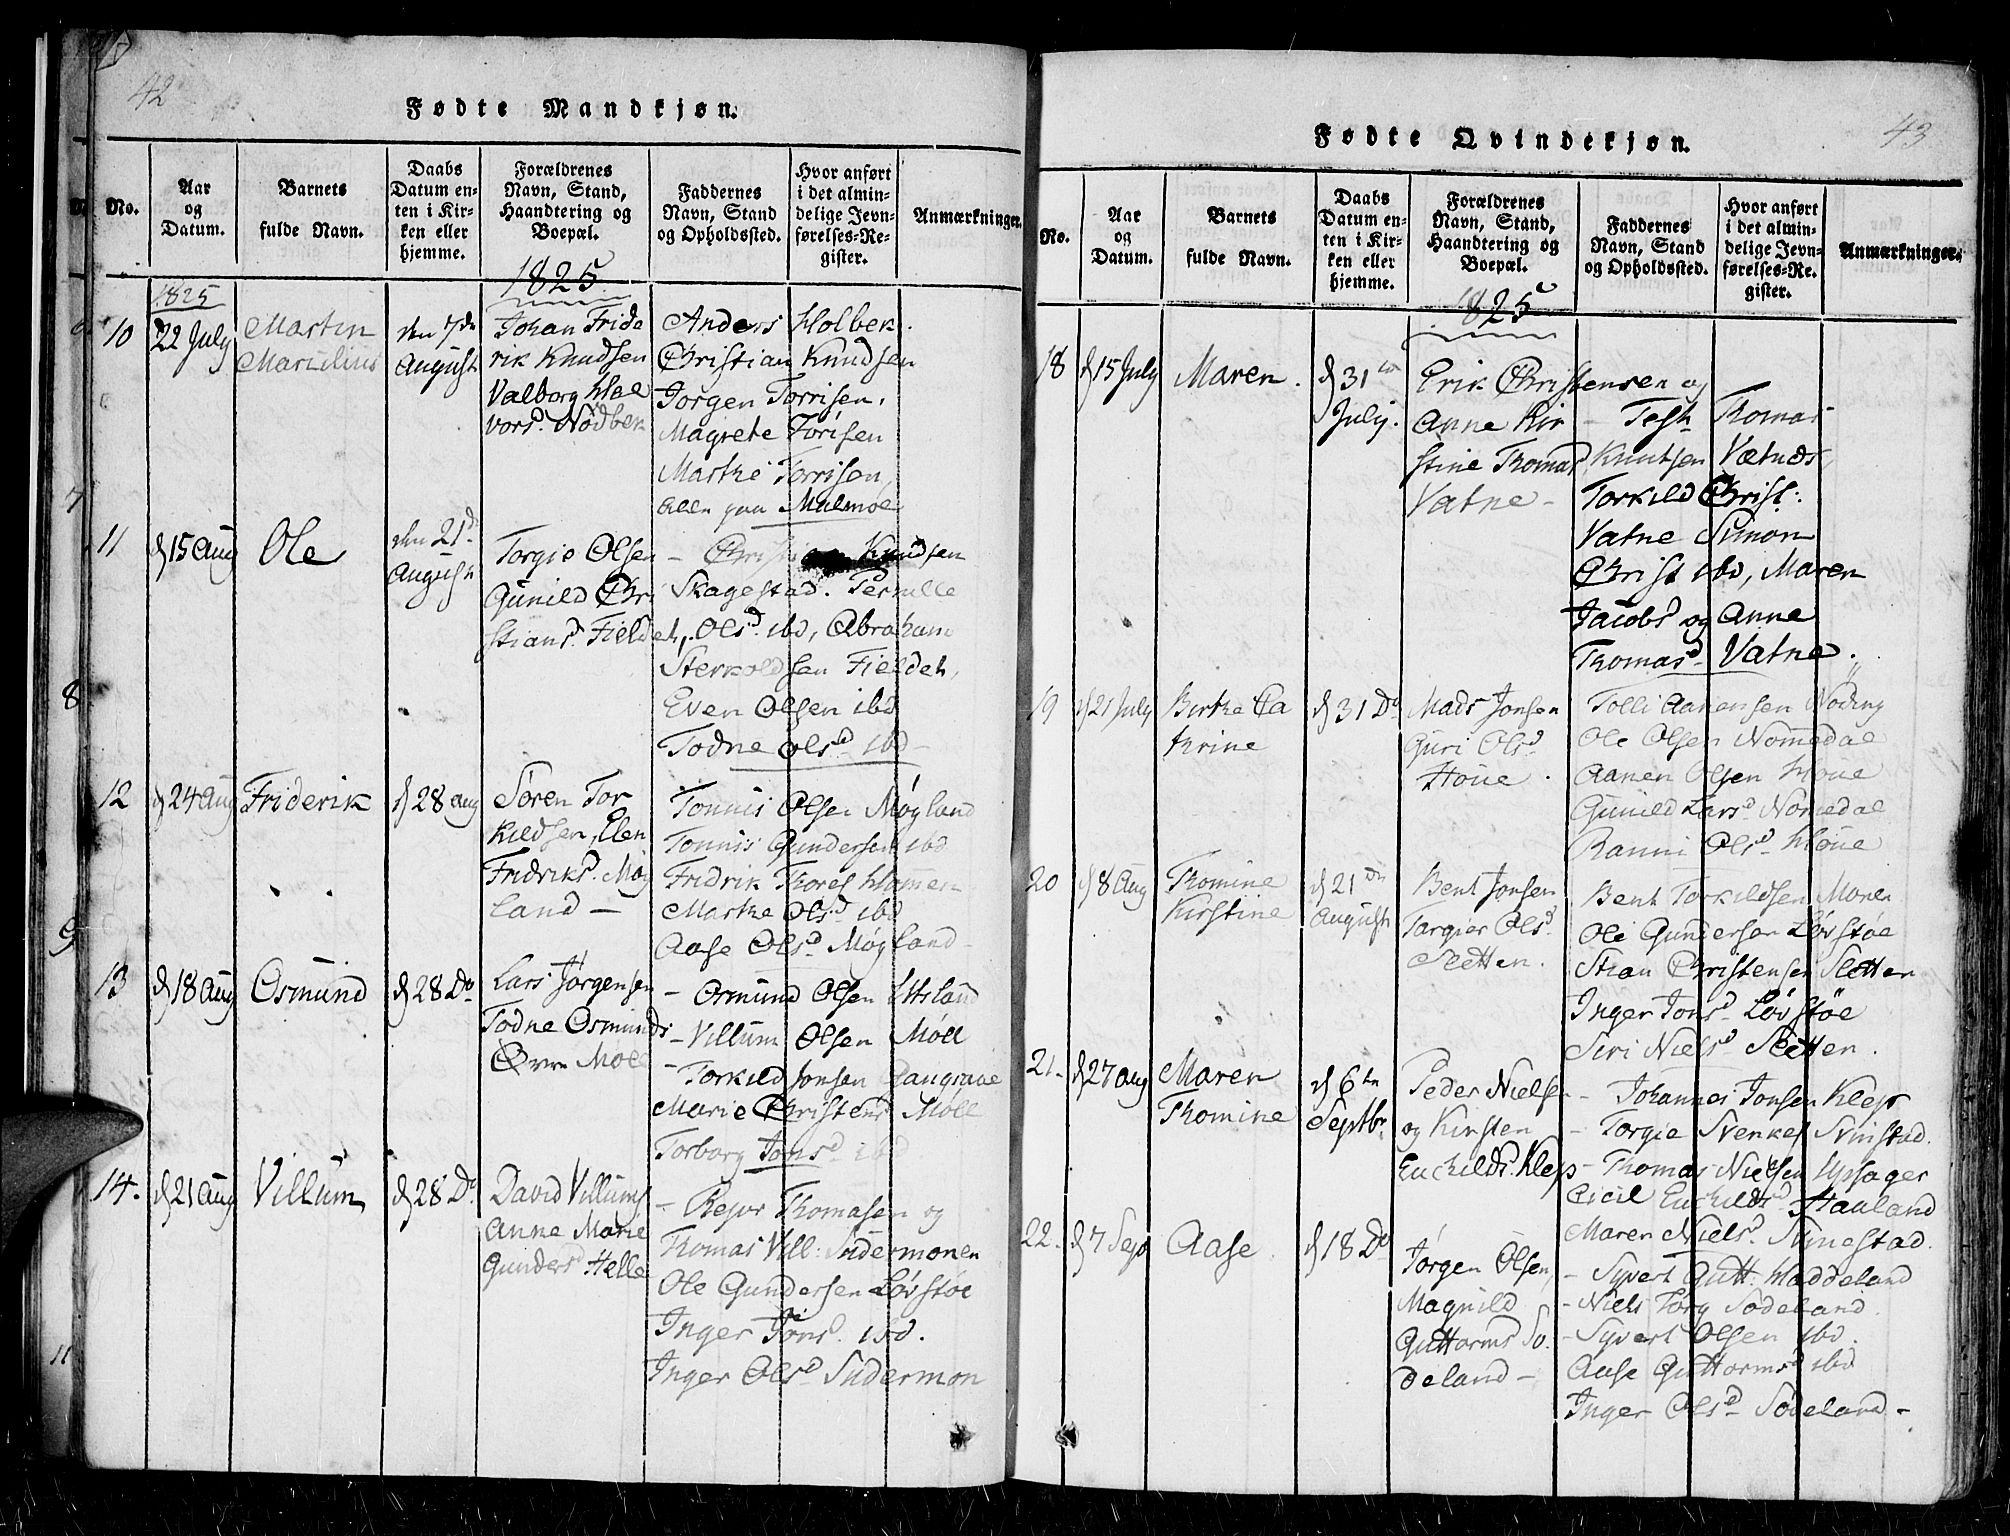 42
Fødte Mandkjøn.
No.
Aar
og
Datum.
Barnets
fulde Navn.
Daabs
Datum en-
ten i Kir-
ken eller
hjemme.
Forældrenes
Navn, Stand,
Haandtering og
Boepæl.
Faddernes
Navn, Stand
og Opholdssted.
Hvor anført
i det almin-
delige Jevn-
førelses-Re-
gister.
Anmærkninger.
1825
1825
10
22 July
Martin
Marcelius
den 7de
August
Johan Fride
rik Knudsen
Valborg Hal
vors. Nødbek
Anders Holbek.
Christian Knudsen
Jorgen Torrisen,
Magrete Torisen
Marthe Torrisen,
alle paa Malmøe
11
d 15 Aug
Ole
den 21d
August
Torgie Olsen
Gunild Chri
stiansd. Fieldet,
- Knudsen
Skagestad. Pernille
Olsd. ibd, Abraham
Sterkoldsen Fieldet,
Even Olsen ibd
Todne Olsd ibd -
12
d 24 Aug
Friderik
d 28 Aug
Søren Tor
kildsen, Elen
Fridriksd. Møg
land -
Tonnis Olsen Møgland
Tonnis Gundersen ibd
Fridrik Thores Homen
Marthe Olsd ibd
Aase Olsd Møgland -
13
d 18 Aug
Osmund
d 28 Do
Lars Jørgensen
Todne Osmunds
Øvre Moll
- Osmund Olsen Etsland
- Villum Olsen Møll
- Torkild Jonsen
Marie Christensd Møll
Torborg Jonsd ibd
14.
d 21 Aug
Villum
d 28 Do
David Villums
Anne Marie
Gundersd Helle
- Rejor Thomasen og
Thomas Vill: Sudermonen
Ole Gundersen Løvstøe
Inger Jonsd. ibd.
Inger Olsd Sudermon
43
Fødte Qvindekjøn.
No.
Aar
og
Datum.
Barnets
fulde Navn.
Daabs
Datum en-
ten i Kir-
ken eller
hjemme.
Forældrenes
Navn, Stand,
Haandtering og
Boepæl.
Faddernes
Navn, Stand
og Opholdssted.
Hvor anført
i det almin-
delige Jevn-
førelses-Re-
gister.
Anmærkninger.
1825
18
d 15 July
Maren.
d 31te
July.
Erik Christensen og
Anne Kir
stine Thomasd
Vatne -
- Test Thomas
Knutsen Vatne
Torkild Christ:
Vatne Simon
Christ ibd, Maren
Jacobs og Anne
Thomasd Vatne.
19
d 21 July
Birthe Ca
thrine
d 31 Do
Mads Jonsen
Guri Olsd
Houe.
Tolli Aanensen Noding
Ole Olsen Nomedal
Aanen Olsen Houe
Gunild Larsd Nomedal
Ranni Olsd Houe
20
d 8 Aug
Thomine
Kirstine
d 21de
August
Bent Jonsen
Targier Olsd
Sletten.
Bent Torkildsen Monen
Ole Gundersen Løvstøe
Stian Christensen Sletten
Inger Jonsd Løvstøe
Siri Nielsd Sletten.
21.
d 27 Aug
Maren
Thomine
d 6te
Septbr
Peder Nielsen
og Kirsten
Enchildsd. Klep
- Johannes Jonsen Klep
- Torgie Svenkes Svinstad.
- Thomas Nielsen Upsager
Cicil Enchildsd Haaland
Maren Nielsd. Svinestad.
22.
d 7 Sept
Aase.
d 18 Do
Jorgen Olsen,
Magnild
Guttorms So
deland -
- Syvert Gutt: Haddeland
- Niels Torg Sodeland.
- Syvert Olsen ibd.
Aase Guttormsd ibd
Inger Olsd Sodeland -